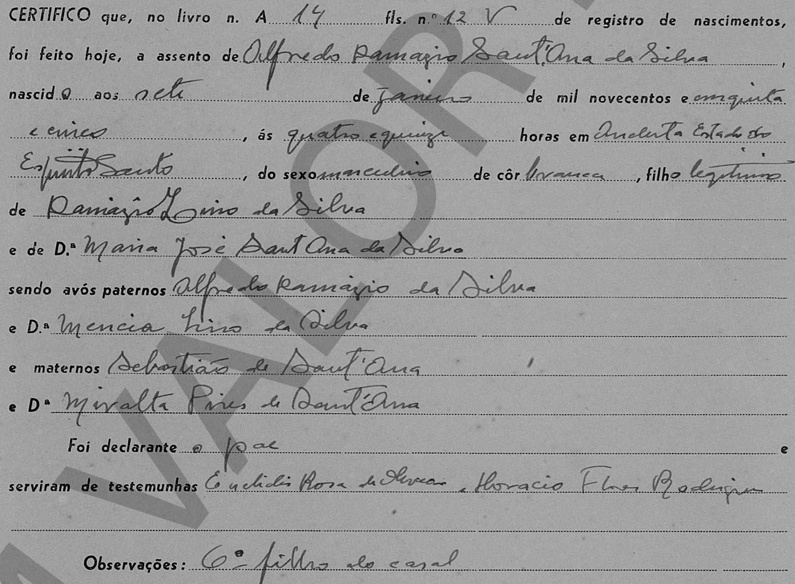 CERTIFICO que, no livro n. A 14 fls. n.º 12 V de registro de nascimentos,
foi feito hoje, a assento de Alfredo Ramagio Sant'Ana da Silva,
nascido aos sete de Janeiro de mil novecentos e cinquenta
e cinco, ás quatro e quinze horas em Estado do
Espirito Santo, do sexo masculino de côr branca, filho legitimo
de Ramagio Lino da Silva
e de D.ª Maria José Sant'Ana da Silva
sendo avós paternos Alfredo Ramagio da Silva
e D.ª Mencia Lino da Silva
e maternos Sebastião de Sant'Ana
e Dª Miralta Pires de Sant'Ana
Foi declarante o pae e
serviram de testemunhas Euclides Rosa de e Horacio Rodrigues
Observações: 6º filho do casal
VALOR